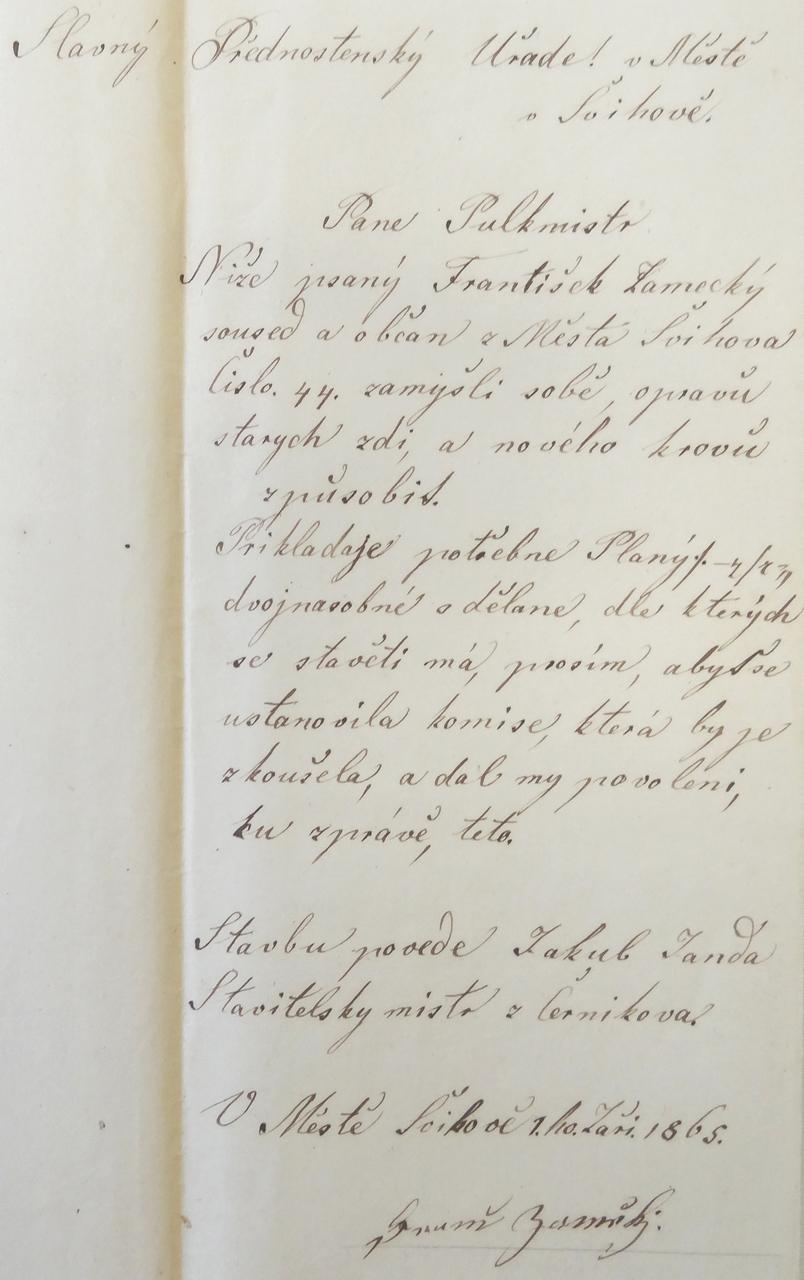 Slavný Přednostenský Uřade! v Městě
v Švihově.
Pane Pulkmistr
Niže psaný František Zamecký
soused a občan z Města Švihova
Čislo. 44. zamyšli sobě, opravů
starych zdi, a nového krovů
způsobit.
Přikladaje potřebne Planý
dvojnasobné sdělane, dle kterých
se stavěti má, prosím, aby se
ustanovila komise, která by je
zkoušela, a dal my povoleni,
ku zprávě, teto.
Stavbu povede Jakub Janďa
Stavitelsky mistr z Černikova.
V Městě Švihově 1.ho. Záři. 1865.